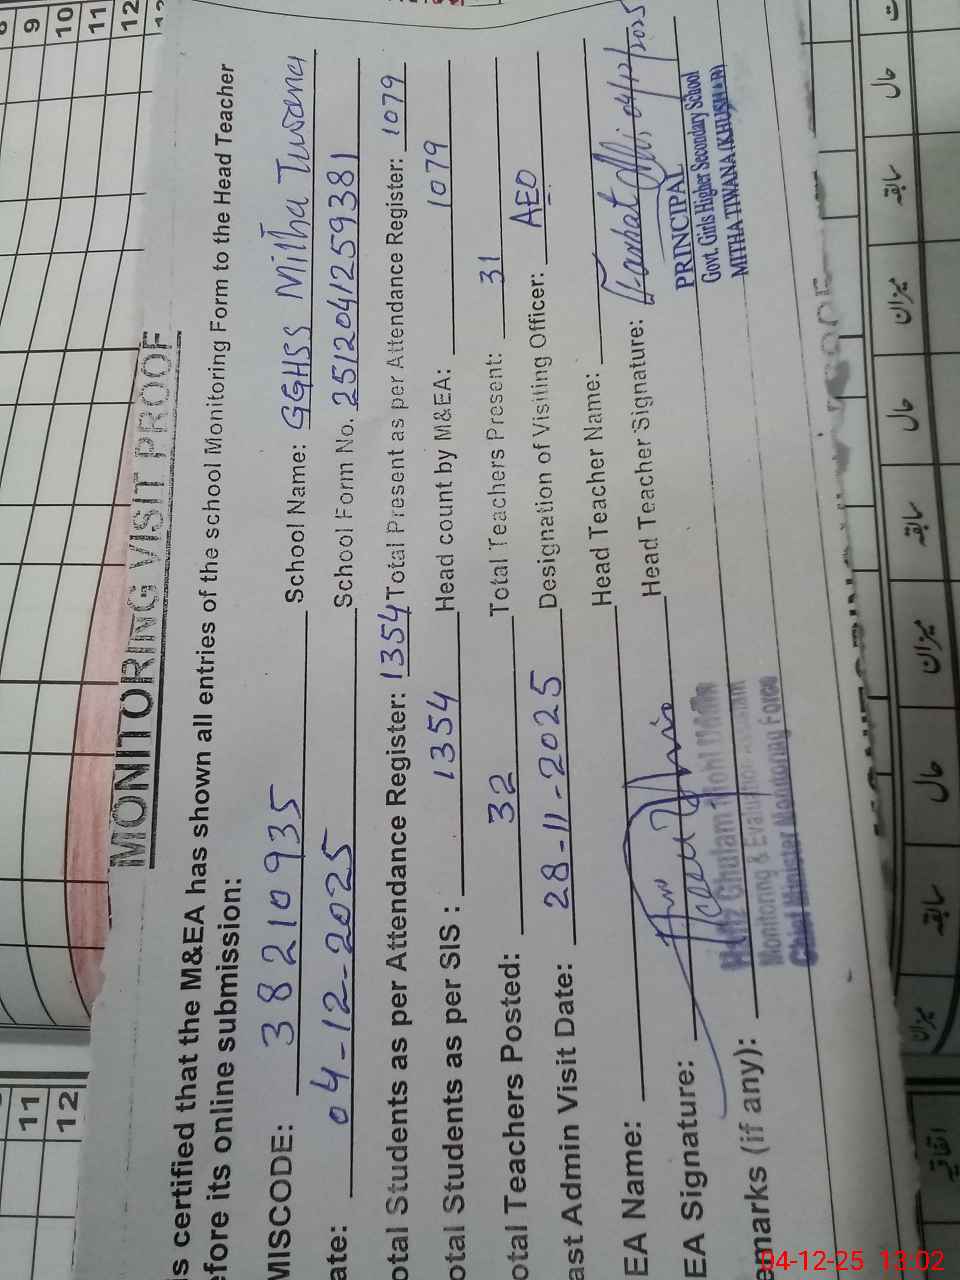 MONITORING VISIT PROOF
is certified that the M&EA has shown all entries of the school Monitoring Form to the Head Teacher
efore its online submission:
MISCODE: 38210935 School Name: GGHSS Mitha Tiwana
ate: 04-12-2025 School Form No. 251204125938 1
otal Students as per Attendance Register: 1354 Total Present as per Attendance Register: 1079
otal Students as per SIS: 1354 Head count by M&EA: 1079
otal Teachers Posted: 32 Total Teachers Present: 31
ast Admin Visit Date: 28-11-2025 Designation of Visiting Officer: AEO
EA Name: Head Teacher Name:
EA Signature: Head Teacher Signature: 04/12/2025
PRINCIPAL
Govt. Girls Higher Secondary School
MITHA TIWANA (KHUSHAB)
Hafiz Ghulam Mohi Uddin
Monitoring & Evaluation Assistant
Chief Minister Monitoring Force
emarks (if any):
9
10
11
12
11
12
حال
سابقہ
میزان
حال
سابقہ
میزان
حال
سابقہ
میزان
04-12-25 13:02